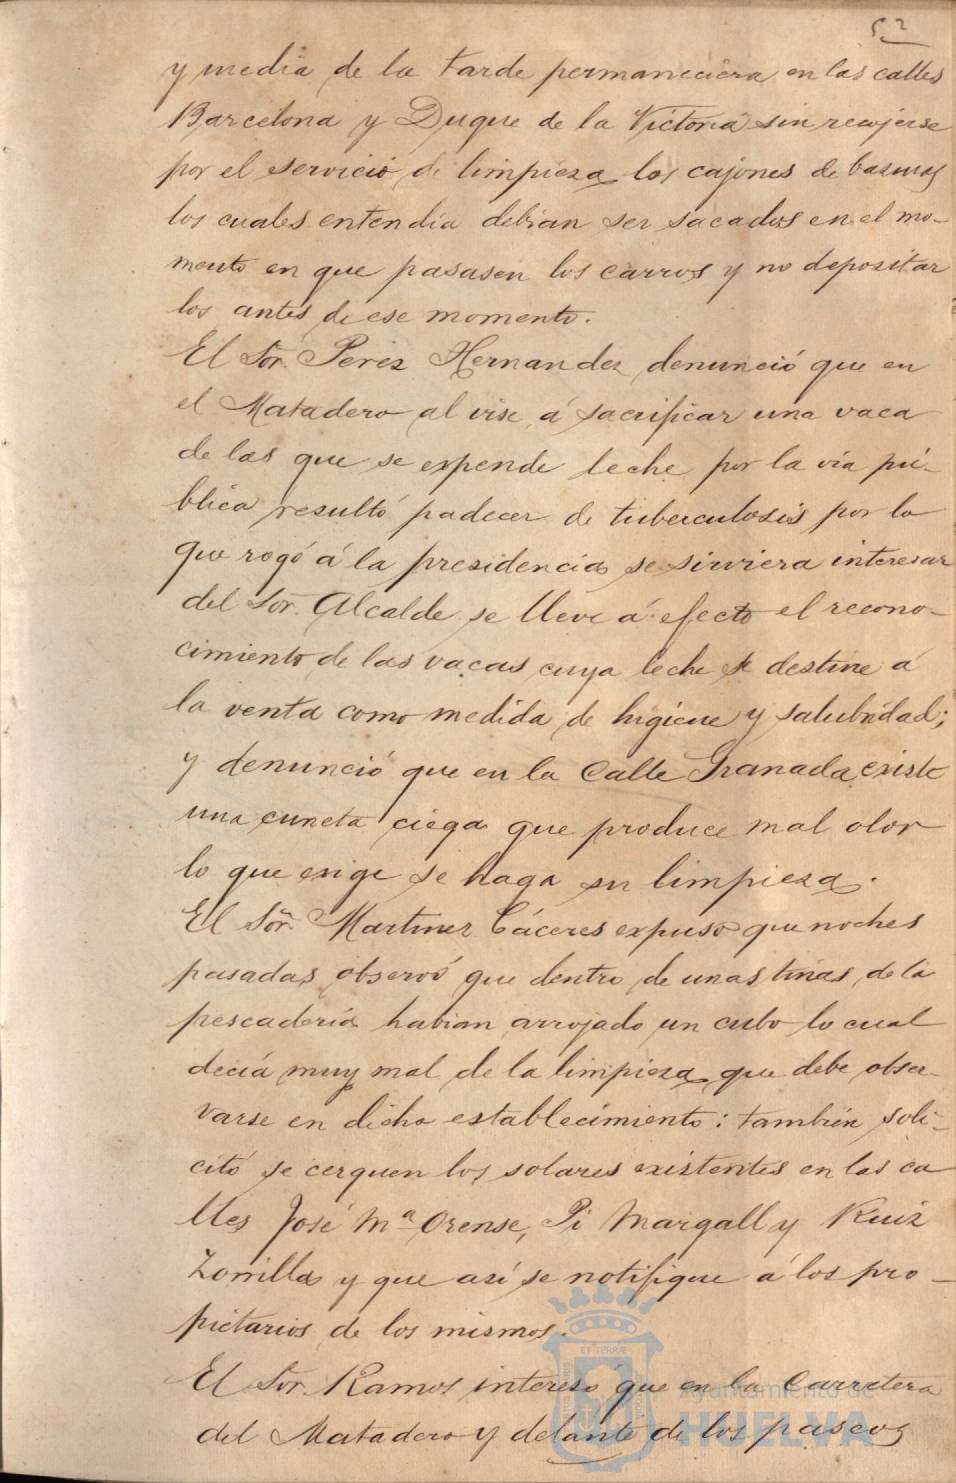 52
y media de la tarde permaneciera en las calles
Barcelona y Duque de la Victoria sin recojerse
por el servicio de limpieza los cajones de basuras
los cuales entendia debian ser sacados en el mo-
mento en que pasasen los carros y no depositar
los antes de ese momento.
El Sor. Perez Hernandez denunció que en
el Matadero al irse á sacrificar una vaca
de las que se expende leche por la via pú-
blica resultó padecer de tuberculosis por lo
que rogó á la presidencia se sirviera interesar
del Sor. Alcalde se lleve á efecto el recono-
cimiento de las vacas cuya leche se destine á
la venta como medida de higiene y salubridad;
y denunció que en la Calle Granada existe
una cuneta ciega que produce mal olor
lo que exige se haga su limpieza.
El Sor. Martinez Cáceres expuso que noches
pasadas observó que dentro de unas tinas de la
pescadería habian arrojado un cubo lo cual
decía muy mal de la limpieza que debe obser-
varse en dicho establecimiento: también soli-
citó se cerquen los solares existentes en las ca
lles José Mª Orense, Pi Margall y Ruiz
Zorrilla y que así se notifique á los pro-
pietarios de los mismos.
El Sor. Ramos interesó que en la Carretera
del Matadero y delante de los paseos
ET TERRÆ
Ayuntamiento de
HUELVA